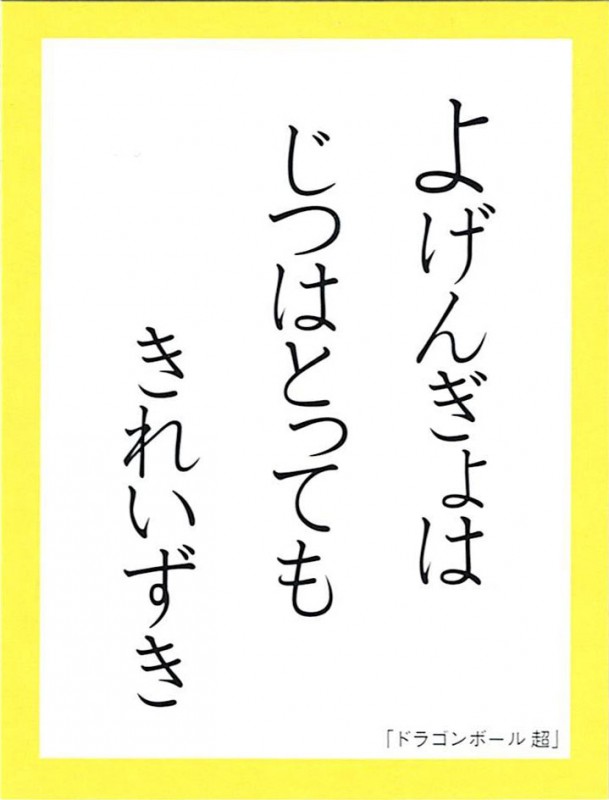 よげんぎょは
じつはとっても
きれいずき
「ドラゴンボール 超」